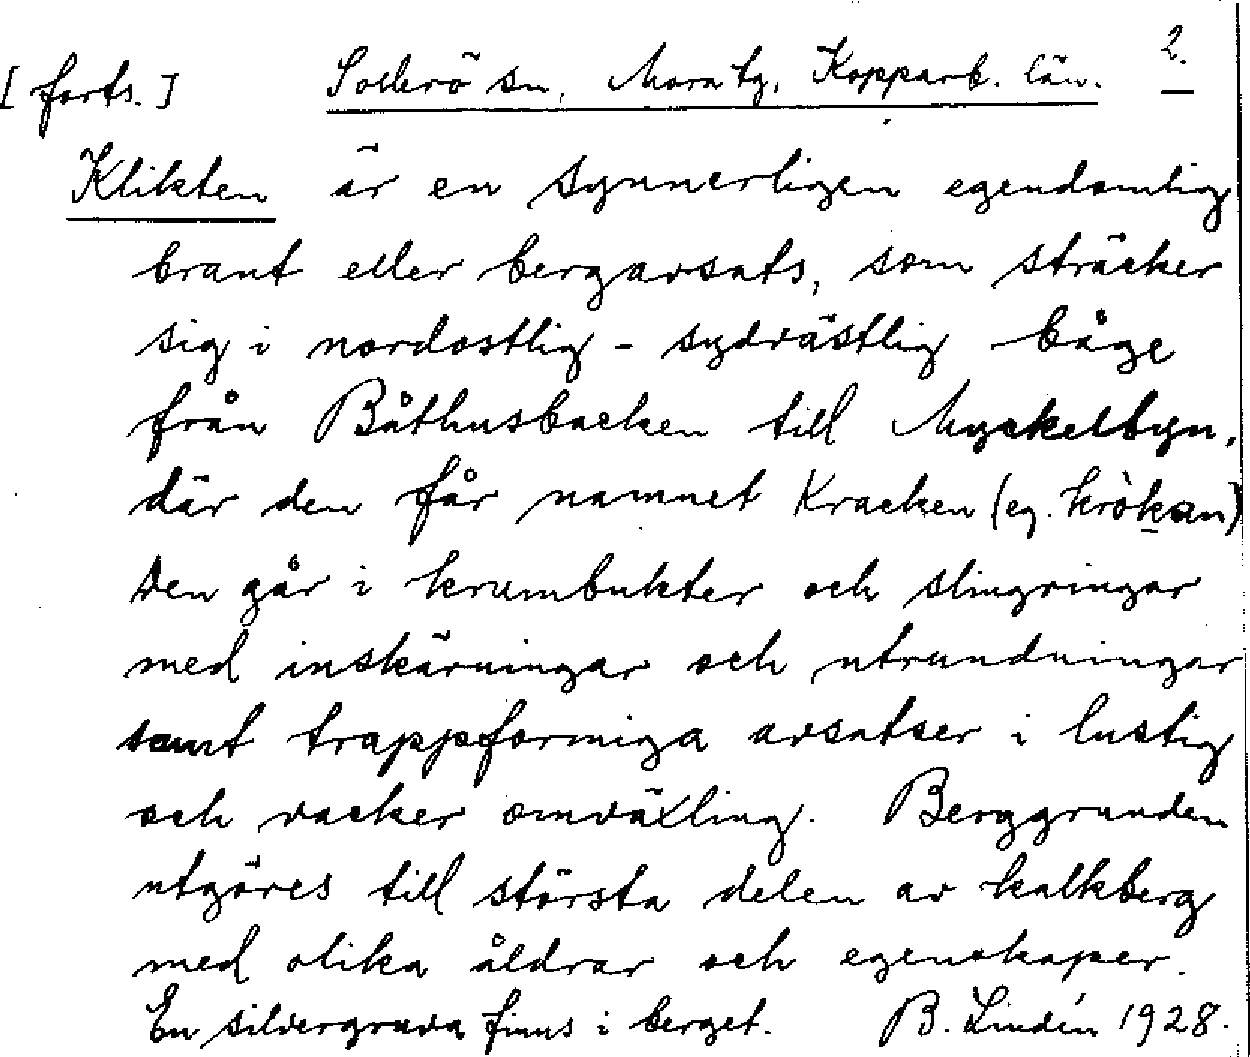 [forts.] Sollerö sn, Mora tg, Kopparb. län. 2.
Klikten är en synnerligen egendomlig
brant eller bergavsats, som sträcker
sig i nordostlig - sydvästlig båge
från Båthusbacken till Myckelbyn,
där den får namnet Kracken (eg. kròkan)
Den går i krumbukter och slingringar
med inskärningar och utrundningar
samt trappformiga avsatser i lustig
och vacker omväxling. Berggrunden
utgöres till största delen av kalkberg
med olika åldrar och egenskaper.
En silvergruva finns i berget. B. Lindén 1928.